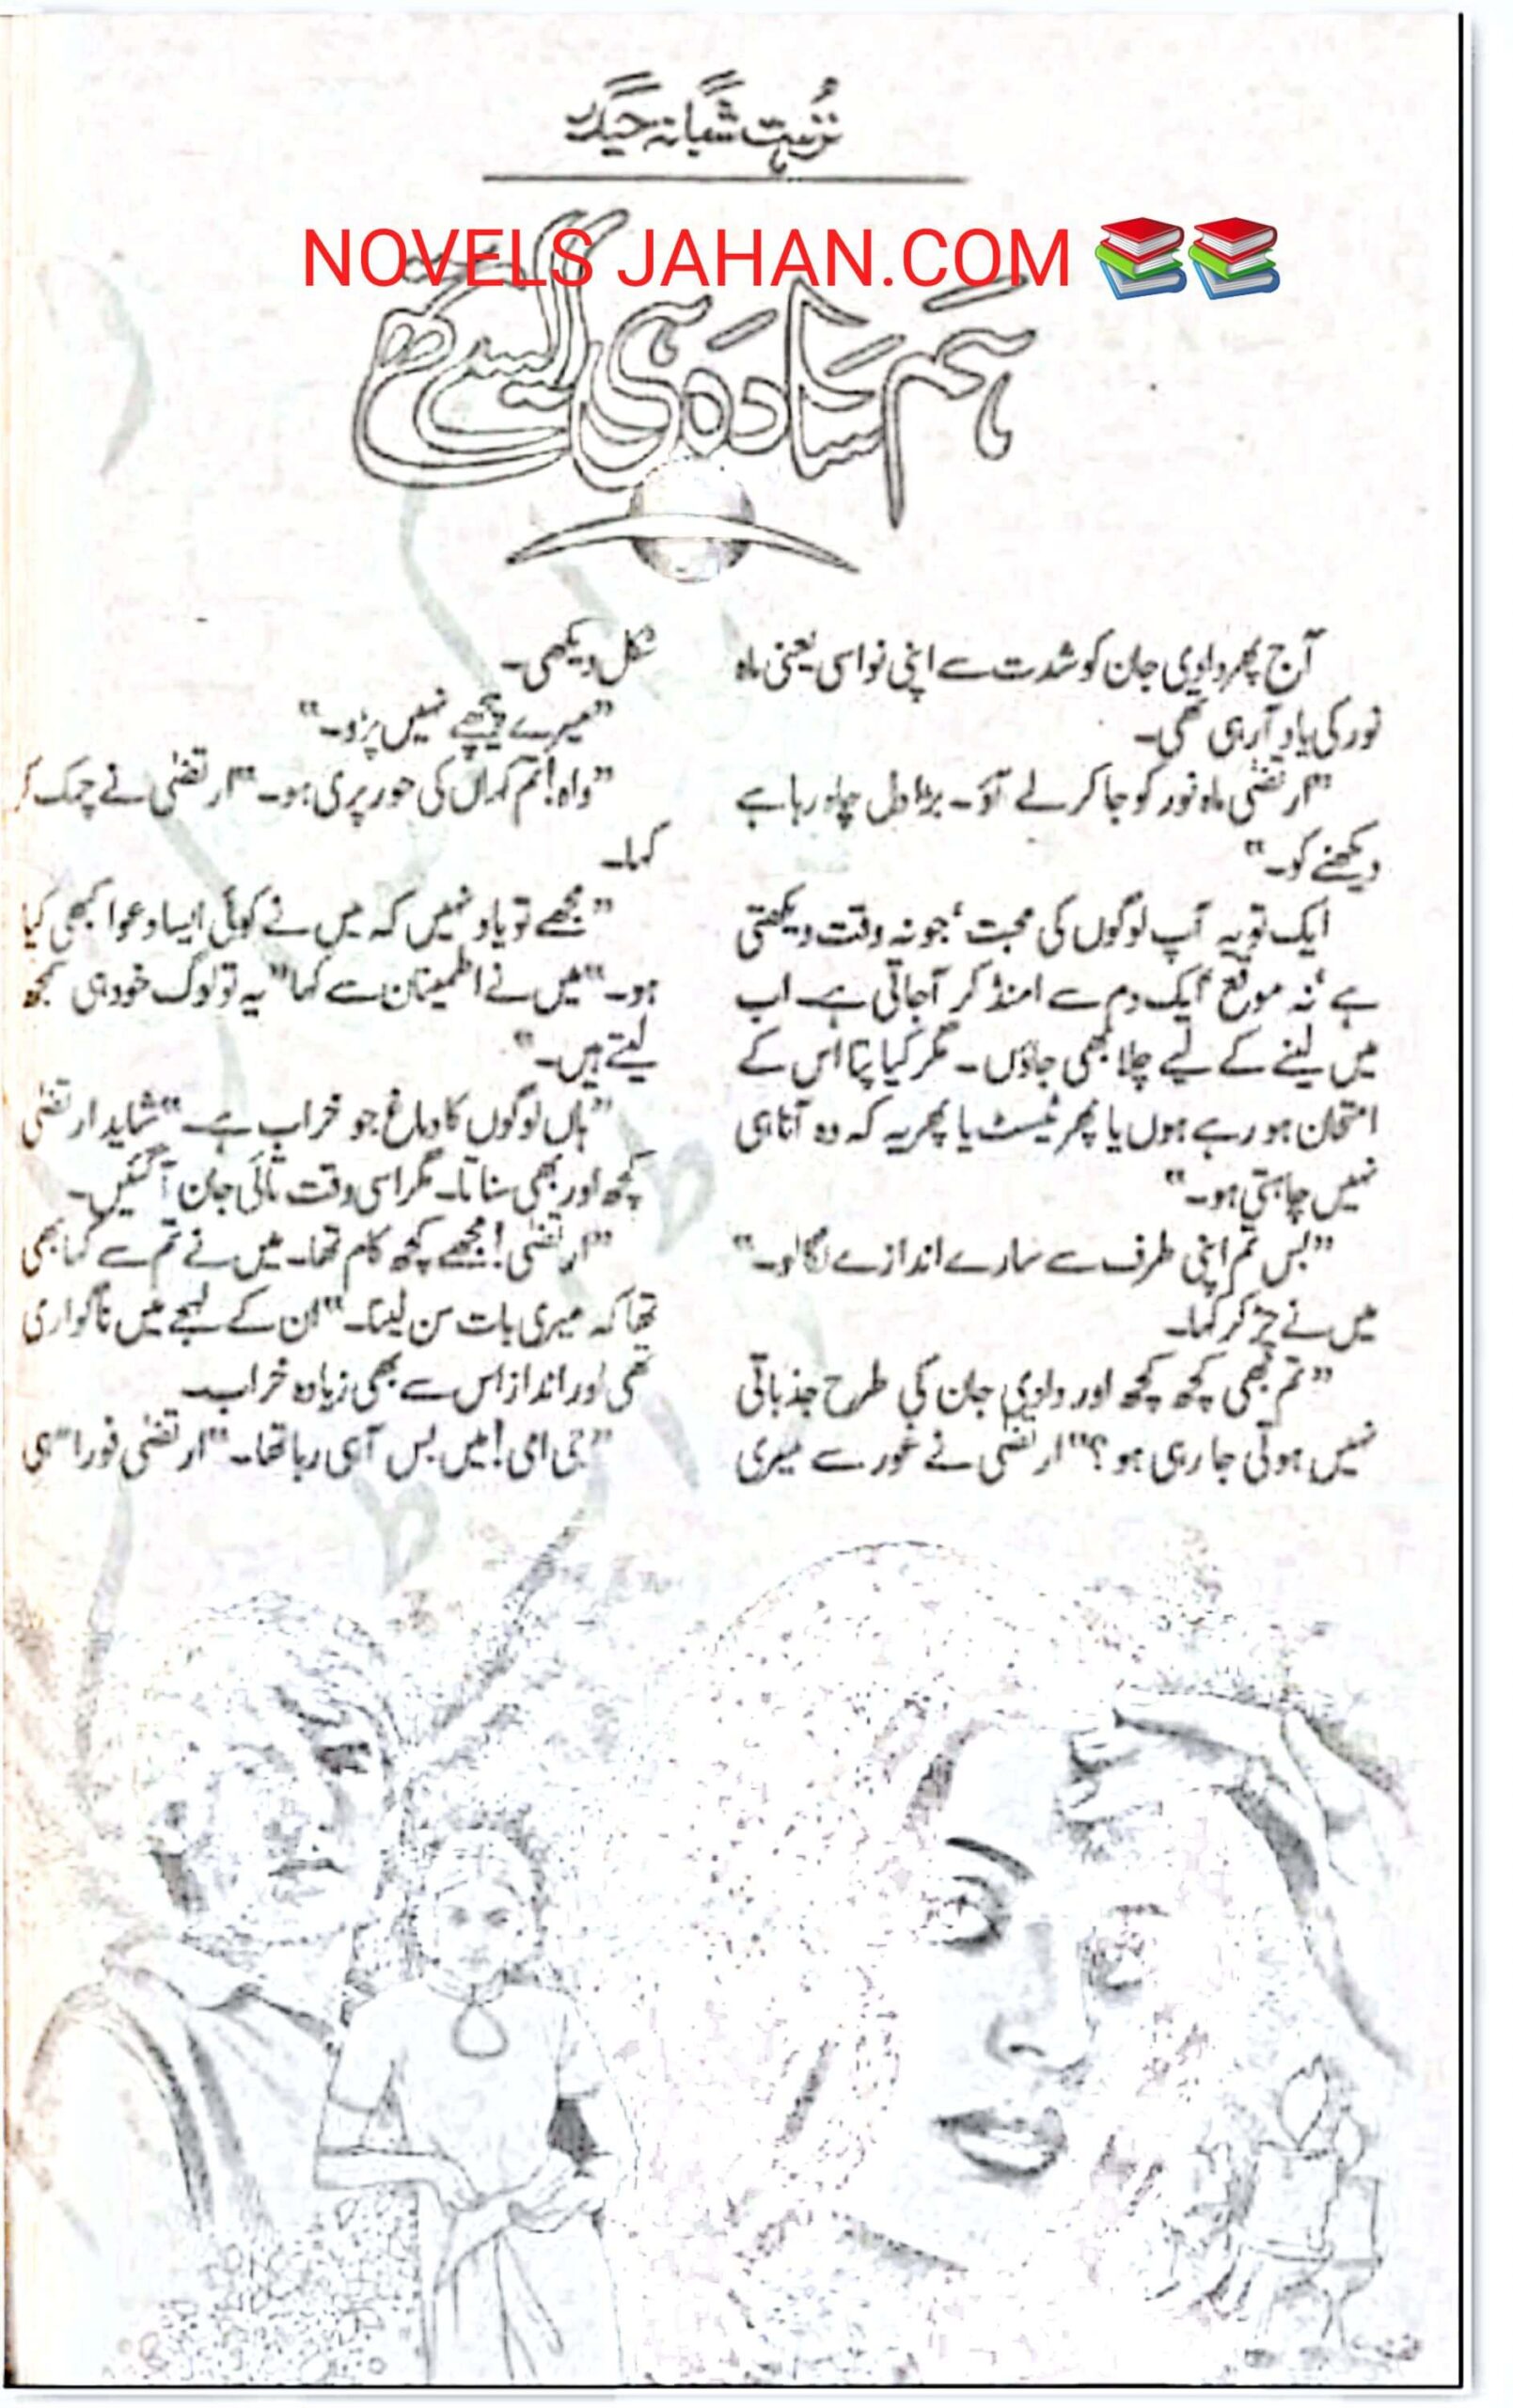 نزہت شبانہ حیدر
NOVELS JAHAN.COM 📚📚
ہم سادہ ہی ایسے تھے
آج پھر دادی جان کو شدت سے اپنی نواسی یعنی ماہ
نور کی یاد آ رہی تھی۔
”ارتضٰی ماہ نور کو جا کر لے آؤ۔ بڑا دل چاہ رہا ہے
دیکھنے کو۔“
ایک تو یہ آپ لوگوں کی محبت‘ جو نہ وقت دیکھتی
ہے‘ نہ موقع‘ ایک دم سے امنڈ کر آجاتی ہے۔ اب
میں لینے کے لیے چلا بھی جاؤں۔ مگر کیا پتا اس کے
امتحان ہو رہے ہوں یا پھر ٹیسٹ یا پھر یہ کہ وہ آنا ہی
نہیں چاہتی ہو۔“
”بس تم اپنی طرف سے سارے اندازے لگا لو۔“
میں نے چڑ کر کہا۔
”تم بھی کچھ کچھ اور دادی جان کی طرح جذباتی
نہیں ہوتی جا رہی ہو؟“ ارتضٰی نے غور سے میری
شکل دیکھی۔
”میرے پیچھے نہیں پڑو۔“
”واہ! تم کہاں کی حور پری ہو۔“ ارتضٰی نے چمک کر
کہا۔
”مجھے تو یاد نہیں کہ میں نے کوئی ایسا دعوا کبھی کیا
ہو۔“ میں نے اطمینان سے کہا ”یہ تو لوگ خود ہی سمجھ
لیتے ہیں۔“
”ہاں لوگوں کا دماغ جو خراب ہے۔“ شاید ارتضٰی
کچھ اور بھی سناتا۔ مگر اسی وقت تائی جان آ گئیں۔
”ارتضٰی! مجھے کچھ کام تھا۔ میں نے تم سے کہا بھی
تھا کہ میری بات سن لینا۔“ ان کے لہجے میں ناگواری
تھی اور انداز اس سے بھی زیادہ خراب۔
”جی امی! میں بس آ ہی رہا تھا۔“ ارتضٰی فورا“ ہی